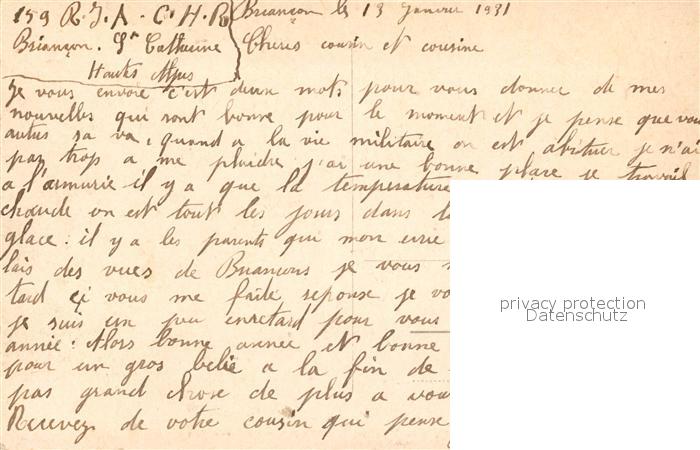 159 R.I.A. C.H.R
Briançon le 13 Janvier 1931
Briançon. Ste Catherine
Cheres cousin et cousine
Hautes Alpes
Je vous envoie c'est deux mots pour vous donner de mes
nouvelles qui sont bonne pour le moment et je pense que vou
autres sa va, quand a la vie militaire on est abituer je n'ai
pas trop a me plaidre j'ai une bonne place je travail
a l'armurie il y a que la temperature
chaude on est tout les jours dans l
glace: il y a les parents qui mon
lais des vues de Briançons je vous
tard si vous me faite reponse je vo
je suis un peu enretard pour vous
année: Alors bonne année et bonne
pour un gros belie a la fin de
pas grand chose de plus a vou
Recevez de votre cousin qui pense
privacy protection
Datenschutz